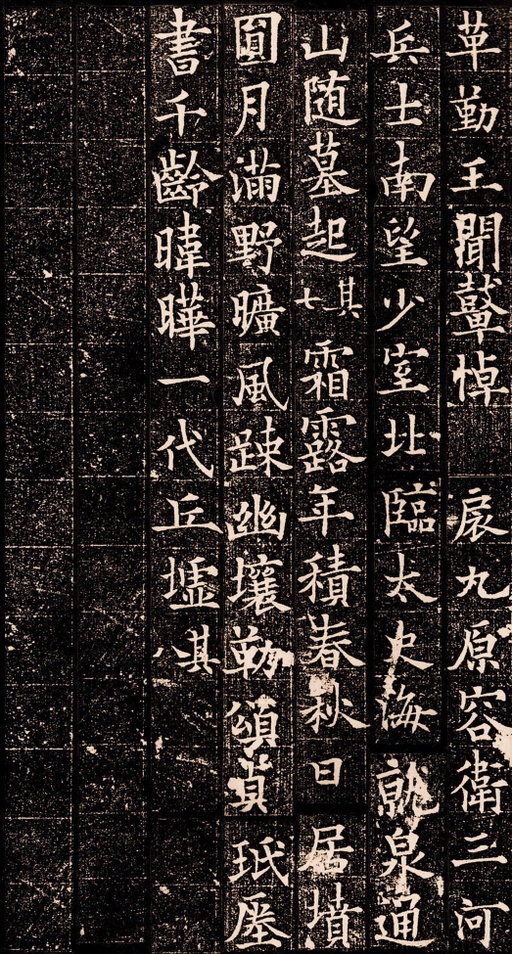 革勤王聞鼙悼扆丸原容衛三河
兵士南望少室北臨太史海就泉通
山随墓起其七霜露年積春秋日居墳
圓月滿野曠風踈幽壤勒頌貞珉厝
書千齡暐曄一代丘墟其八